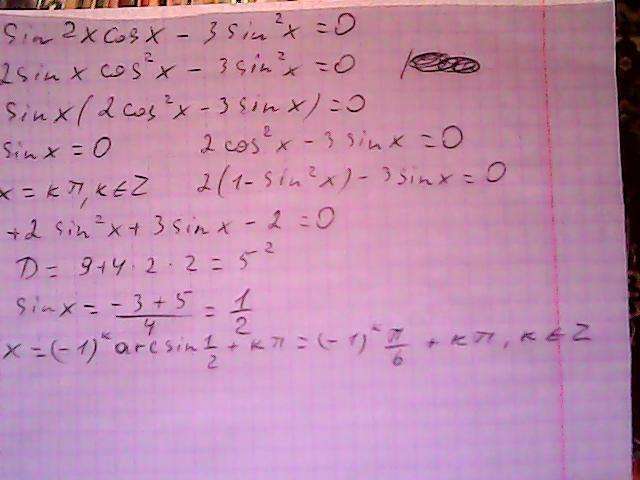 sin2xcosx - 3sin²x = 0
2sinx cos²x - 3sin²x = 0
sinx(2cos²x - 3sinx) = 0
sinx = 0 2cos²x - 3sinx = 0
x = kπ, k∈Z 2(1 - sin²x) - 3sinx = 0
+2 sin²x + 3sinx - 2 = 0
D = 9+4·2·2 = 5²
sinx = (-3+5)/4 = 1/2
x = (-1)ᵏ arcsin 1/2 + kπ = (-1)ᵏ π/6 + kπ, k∈Z